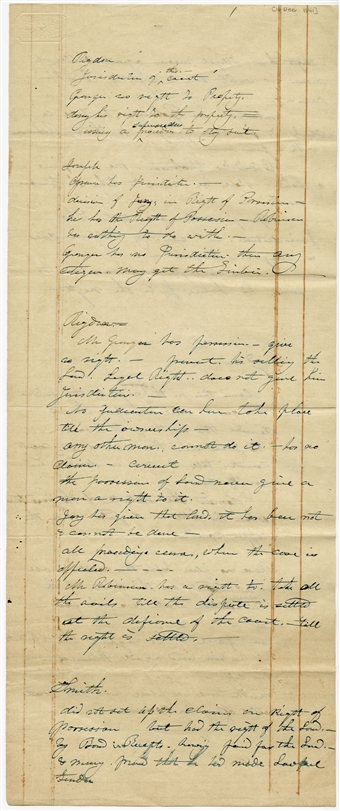 Rigdon
Jurisdiction of the court
Granger no right to Property.
deny his right to the property. =
issuing a supersedeas to stay
Joseph
has jurisdiction. —
decision of Jury, on Right of Possession —
he has the Right of Possession — Robinson
has nothing to do with. —
Granger has no Jurisdiction. then any
citizen. may get the
Rigdon —
Mr Granger has possession. — give
no right. — prevent. his selling the
Land. Legal Right.. does not give him
Jurisdiction. —
No can here take place
till the ownership —
any other man, cannot do it. — has no
claim —
the possession of Land never give a
man a right to it.
Jury has given the land. it has been not
& cannot be done —
all proceedings cease, when the case is
appealed. — — — —
Mr Robinson. has a right to take all
the avails till the dispute is settled
at the of the court. — till
the right is settled. —
Smith.
did not set up the claim on Right of
Possession but had the right of the Land. —
by Bond & Receipts. having paid for the Land. —
& many. that he had made Lawful
Tender